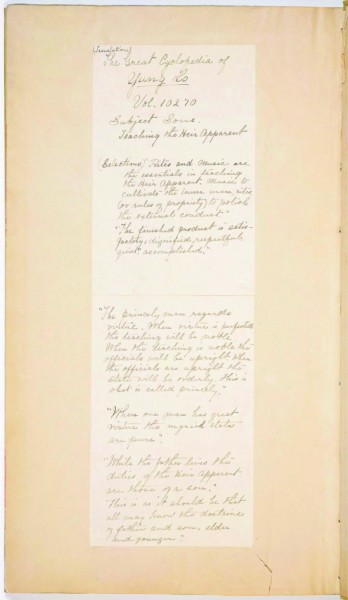 (Translation)
The Great Cyclopedia of
Yung Lo
Vol. 10270
Subject Sons.
Teaching the Heir Apparent
(Selections) "Rites and Music are
the essentials in teaching
the Heir Apparent. Music to
cultivate the inner man, rites
(or rules of propriety) to polish
the external conduct."
"The finished product is satis-
factory, dignified, respectful,
quiet, accomplished."
"The princely man regards
virtue. When virtue is perfected
the teaching will be noble.
When the teaching is noble the
officials will be upright. When
the officials are upright the
state will be orderly. This is
what is called princely."
"When one man has great
virtue the myriad states
are pure."
"While the father lives the
duties of the Heir Apparent
are those of a son."
"This is as it should be that
all may know the doctrine
of father and son, elder
and younger."